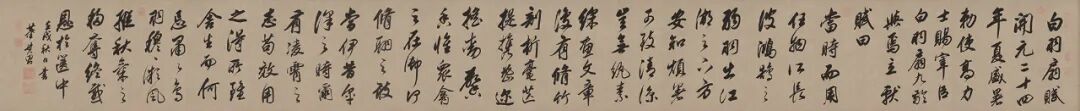 白羽扇賦
開元二十四
年夏盛暑
勅使高力
士賜宰臣
白羽扇九齡
與焉立獻
賦曰
當時而用
任物所長
彼鴻鵠之
弱羽出江
湖之下方
安知煩暑
可致清涼
豈無紈素
綵畫文章
復有脩竹
剖析毫芒
提攜密邇
搖動馨
香惟衆
之在御何
脩翮之敢
當伊昔皋
澤之時亦
有凌霄之
志苟效用
之得所雖
舍生而何
忌肅肅白
羽穆如清風
縱秋氣之
移奪終感
恩於篋中
壬戌秋日書
董其昌